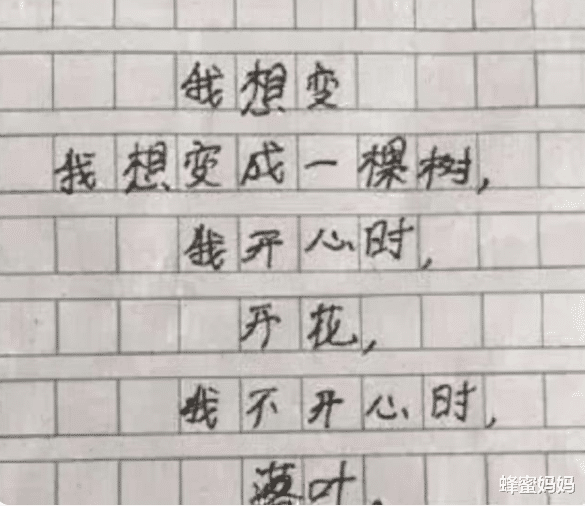 我想变
我想变成一棵树，
我开心时，
开花，
我不开心时，
落叶，
蜂蜜妈妈